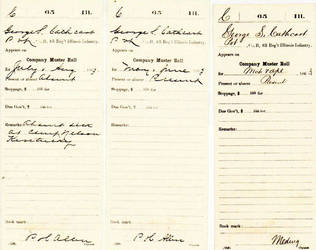 C 65 Ill.
George S. Cathcart
Pvt., Co. B, 65 Reg't Illinois Infantry.
Appears on
Company Muster Roll
for July & Aug, 1863
Present or absent Absent
Stoppage, $ 100 for
Due Gov't, $ 100 for
Remarks: Absent sick
at Camp Nelson
Kentucky
Book mark:
C 65 Ill.
George S. Cathcart
Pvt., Co. B, 65 Reg't Illinois Infantry.
Appears on
Company Muster Roll
for May & June, 1863
Present or absent Present
Stoppage, $ 100 for
Due Gov't, $ 100 for
Remarks:
Book mark:
C 65 Ill.
George S. Cathcart
Appears on
Company Muster Roll
for Mch & Apl, 1863
Present or absent Present
Stoppage, $ 100 for
Due Gov't, $ 100 for
Remarks:
Book mark: